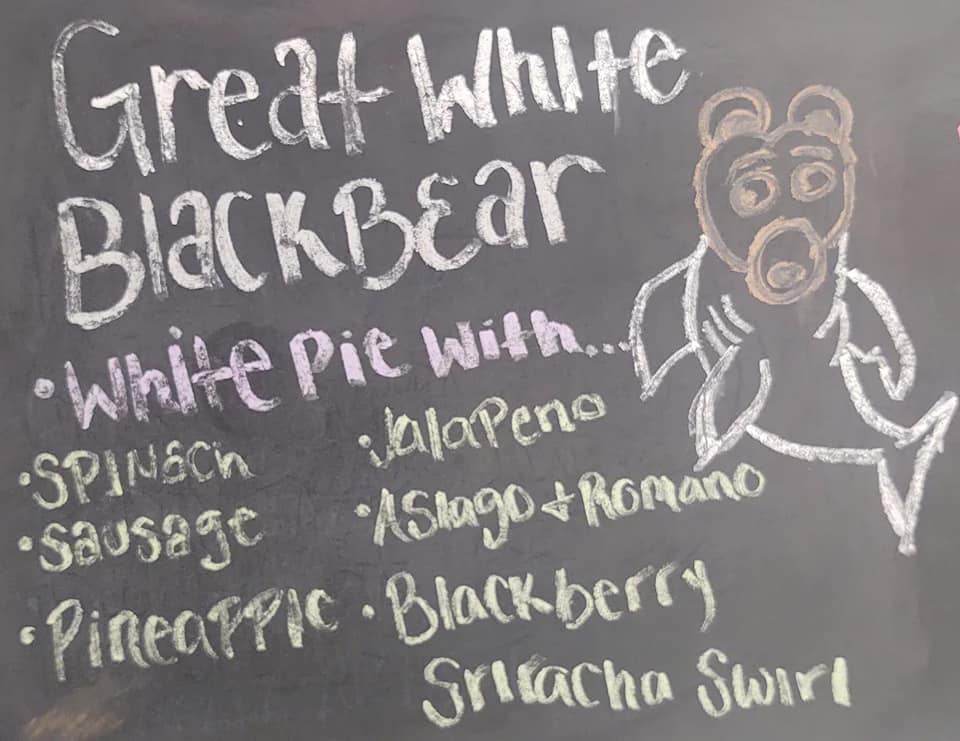 Great White
BlackBear
• White Pie With...
• Spinach
• Sausage
• Pineapple
• Jalapeno
• Asiago + Romano
• Blackberry
Sriracha Swirl